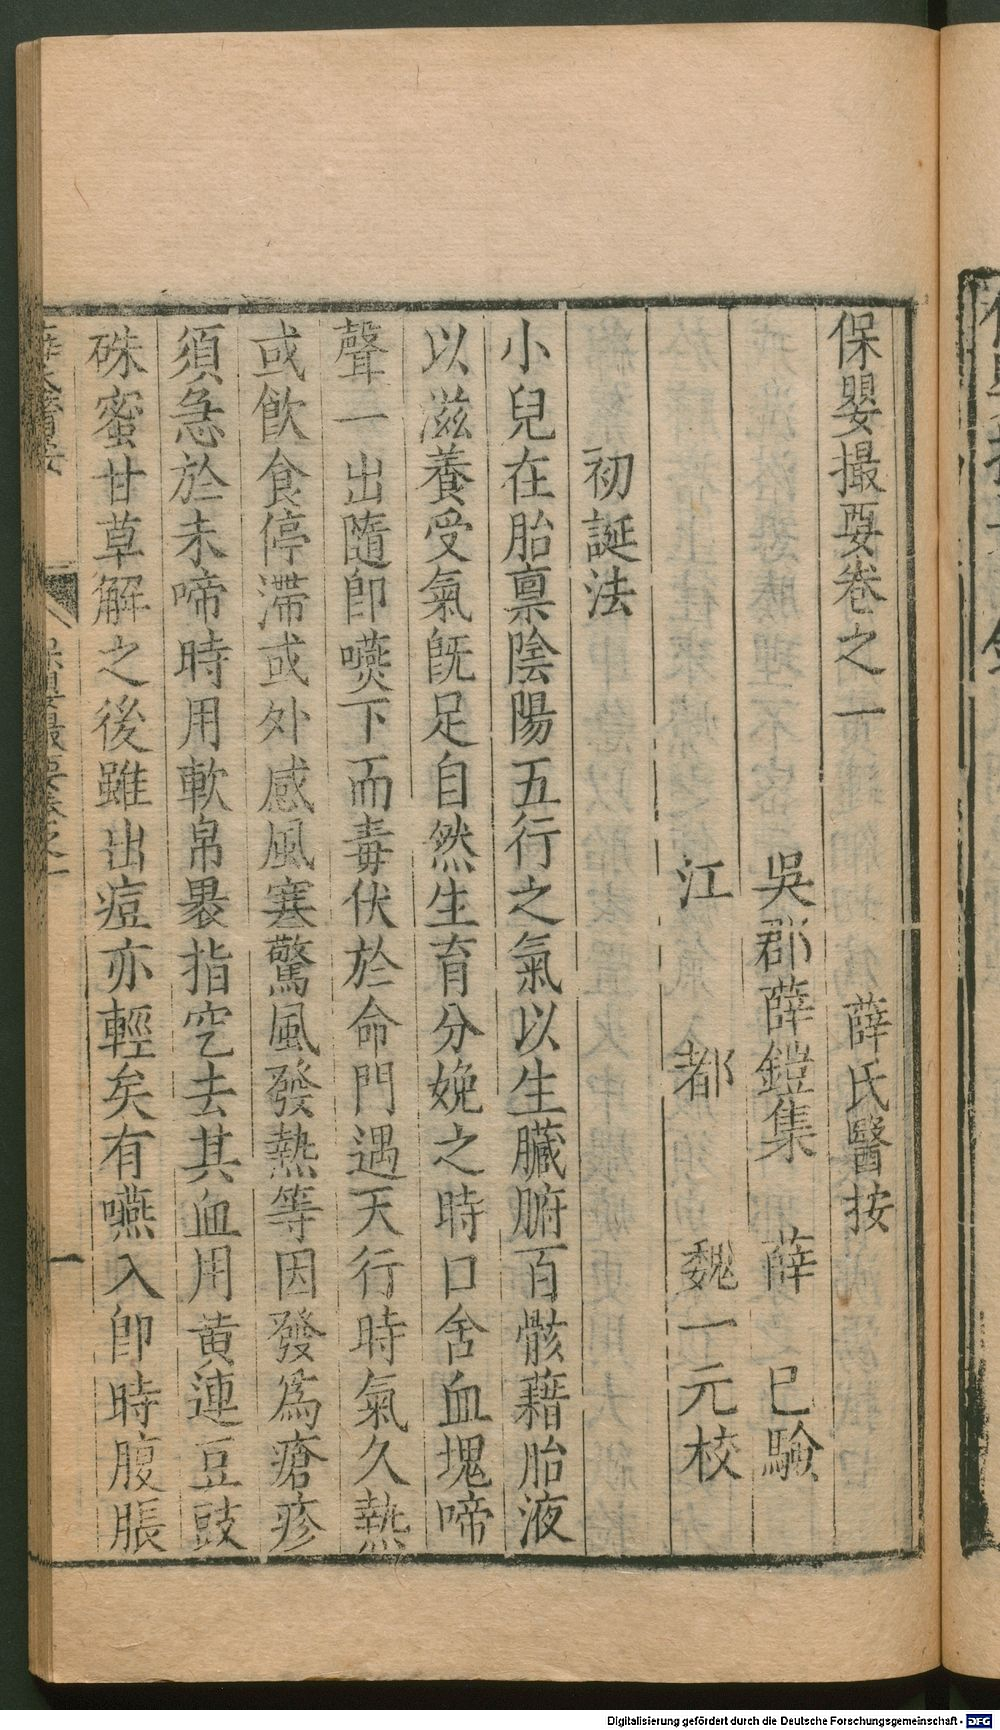 保嬰撮要卷之一
薛氏醫按
吳郡薛鎧集　薛　已驗
江　都　魏一元校
初誕法
小兒在胎禀陰陽五行之氣以生臟腑百骸藉胎液
以滋養受氣旣足自然生育分娩之時口含血塊啼
聲一出隨卽嚥下而毒伏於命門遇天行時氣久熱
或飲食停滯或外感風寒驚風發熱等因發爲瘡疹
須急於未啼時用軟帛裹指穵去其血用黄連豆豉
硃蜜甘草解之後雖出痘亦輕矣有嚥入卽時腹脹
保嬰撮要卷之一
一
Digitalisierung gefördert durch die Deutsche Forschungsgemeinschaft - DFG